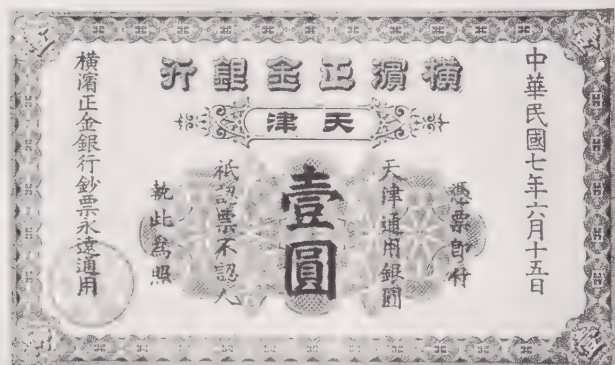 橫濱正金銀行
天津
中華民國七年六月十五日
憑票卽付
天津通用銀圓
壹圓
祇認票不認人
執此爲照
橫濱正金銀行鈔票永遠通用